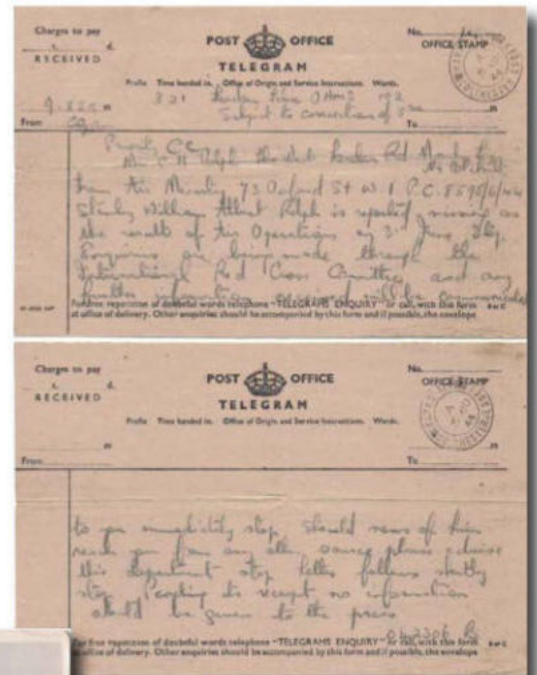 Charges to pay
s. d.
RECEIVED
POST OFFICE
TELEGRAM
No.
OFFICE STAMP
Prefix Time handed in. Office of Origin and Service Instructions. Words.
321
m
From
To
m
Priority CC
Mrs Ralph London Rd
from Air Ministry 73 Oxford St W.1 P.C.
Stanley William Albert Ralph is reported missing as
the result of Air Operations on June Stop
Enquiries are being made through the
International Red Cross Committee and any
further information received will be communicated
For free repetition of doubtful words telephone "TELEGRAMS ENQUIRY" or call, with this form
at office of delivery. Other enquiries should be accompanied by this form and if possible, the envelope
B or C
Charges to pay
s. d.
RECEIVED
POST OFFICE
TELEGRAM
No.
OFFICE STAMP
Prefix Time handed in. Office of Origin and Service Instructions. Words.
m
From
To
m
to you immediately stop should news of him
reach you from any other source please advise
this department stop letter follows shortly
stop pending its receipt no information
should be given to the press
For free repetition of doubtful words telephone "TELEGRAMS ENQUIRY" or call, with this form
at office of delivery. Other enquiries should be accompanied by this form and if possible, the envelope
B or C